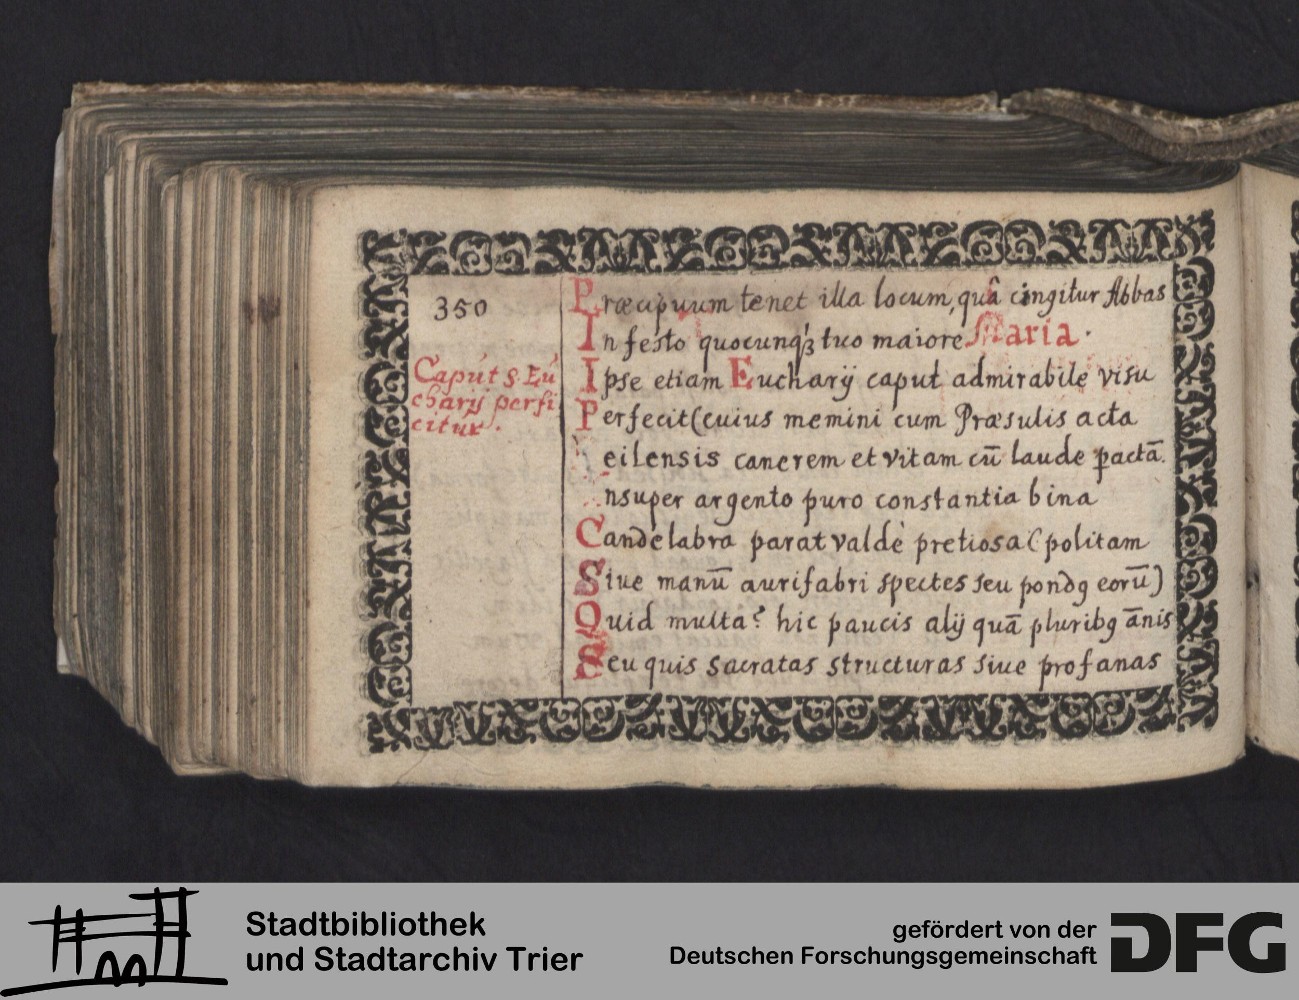 350
Caput S. Eu
charij perfi
citur.
Præcipuum tenet illa locum, quâ cingitur Abbas
In festo quocunqꝫ tuo maiore Maria.
Ipse etiam Eucharij caput admirabile visu
Perfecit (cuius memini cum Præsulis acta
eilensis canerem et vitam cū laude pactā.
nsuper argento puro constantia bina
Candelabra parat valdè pretiosa (politam
Siue manū aurifabri spectes seu pondꝯ eorū)
Quid multa? hic paucis alij quā pluribꝯ ānis
Seu quis sacratas structuras siue profanas
Stadtbibliothek
und Stadtarchiv Trier
gefördert von der
Deutschen Forschungsgemeinschaft
DFG